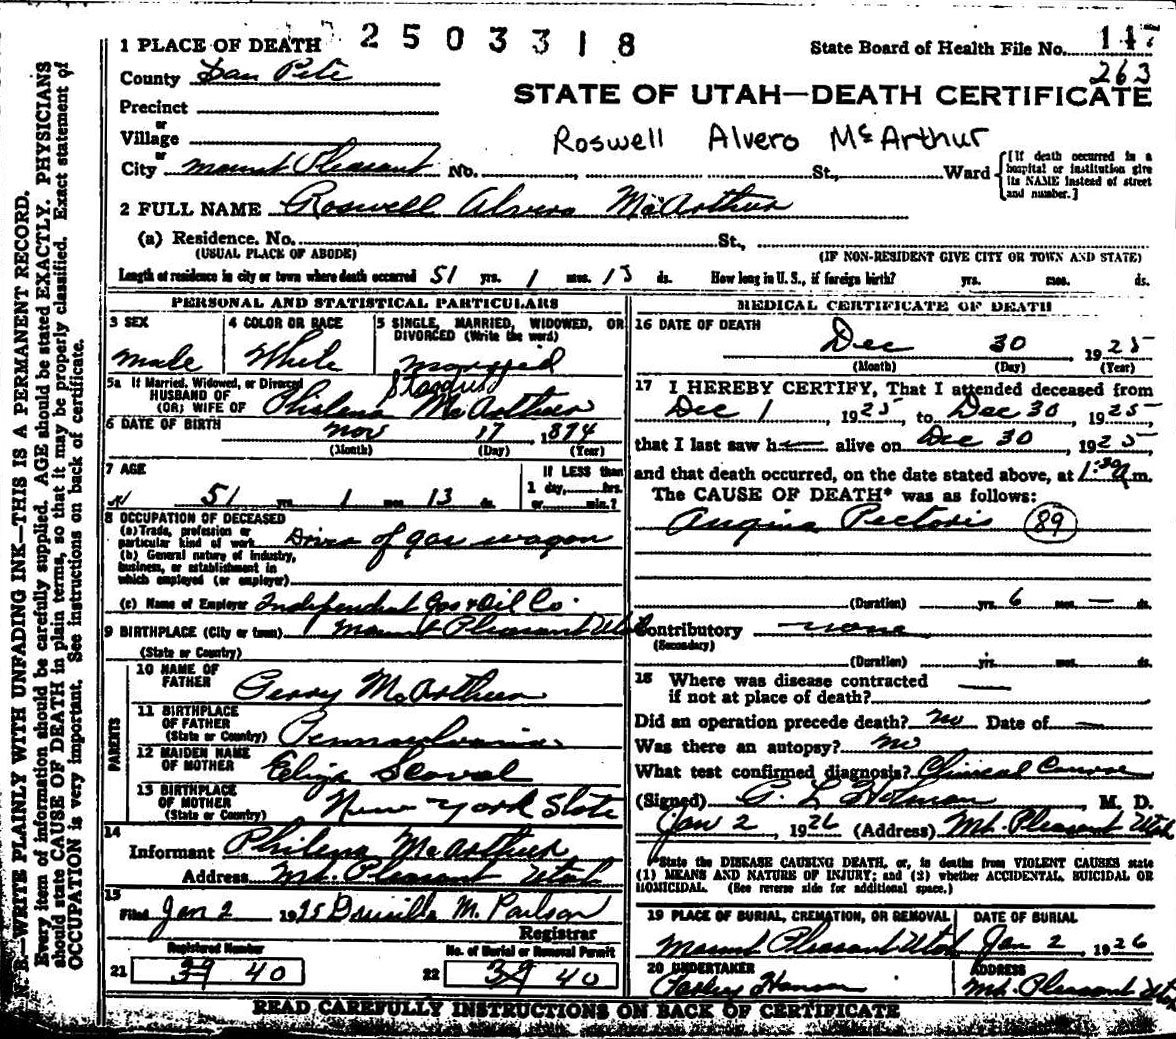 1 PLACE OF DEATH 2503318
State Board of Health File No. 147
263
County San Pete
STATE OF UTAH—DEATH CERTIFICATE
Precinct
or
Village
Roswell Alvero McArthur
or
City Mount Pleasant No. St., Ward
[If death occurred in a hospital or institution give its NAME instead of street and number.]
2 FULL NAME Roswell Alvero McArthur
(a) Residence. No. St.,
(USUAL PLACE OF ABODE) (IF NON-RESIDENT GIVE CITY OR TOWN AND STATE)
Length of residence in city or town where death occurred 51 yrs. 1 mos. 13 ds. How long in U. S., if foreign birth? yrs. mos. ds.
PERSONAL AND STATISTICAL PARTICULARS
3 SEX 4 COLOR OR RACE 5 SINGLE, MARRIED, WIDOWED, OR
DIVORCED (Write the word)
Male White Married
5a If Married, Widowed, or Divorced
HUSBAND OF
(OR) WIFE OF Philena McArthur
6 DATE OF BIRTH Nov 17 1874
(Month) (Day) (Year)
7 AGE If LESS than
1 day, hrs.
51 yrs. 1 mos. 13 ds. or min.?
8 OCCUPATION OF DECEASED
(a) Trade, profession or
particular kind of work Driver of gas wagon
(b) General nature of industry,
business, or establishment in
which employed (or employer)
(c) Name of Employer Independent Gas & Oil Co.
9 BIRTHPLACE (City or town) Mount Pleasant Utah
(State or Country)
PARENTS
10 NAME OF
FATHER Perry McArthur
11 BIRTHPLACE
OF FATHER
(State or Country) Pennsylvania
12 MAIDEN NAME
OF MOTHER Eliza
13 BIRTHPLACE
OF MOTHER
(State or Country) New York State
14
Informant Philena McArthur
Address Mt. Pleasant Utah
15
Filed Jan 2 1925 Drucilla M. Paulson
Registrar
Registered Number No. of Burial or Removal Permit
21 39 40 22 39 40
MEDICAL CERTIFICATE OF DEATH
16 DATE OF DEATH
Dec 30 1925
(Month) (Day) (Year)
17 I HEREBY CERTIFY, That I attended deceased from
Dec 1, 1925 to Dec 30, 1925
that I last saw h alive on Dec 30, 1925
and that death occurred, on the date stated above, at 1:30 m.
The CAUSE OF DEATH* was as follows:
Angina Pectoris 89
(Duration) yrs. 6 mos. — ds.
Contributory none
(Secondary)
(Duration) yrs. mos. ds.
18 Where was disease contracted
if not at place of death?
Did an operation precede death? no Date of —
Was there an autopsy? no
What test confirmed diagnosis? Clinical Course
(Signed) P. L. Holman, M. D.
Jan 2, 1926 (Address) Mt. Pleasant Utah
*State the DISEASE CAUSING DEATH, or, in deaths from VIOLENT CAUSES state
(1) MEANS AND NATURE OF INJURY; and (2) whether ACCIDENTAL, SUICIDAL OR
HOMICIDAL. (See reverse side for additional space.)
19 PLACE OF BURIAL, CREMATION, OR REMOVAL DATE OF BURIAL
Mount Pleasant Utah Jan 2, 1926
20 UNDERTAKER ADDRESS
Hansen Mt. Pleasant Utah
READ CAREFULLY INSTRUCTIONS ON BACK OF CERTIFICATE
B.—WRITE PLAINLY WITH UNFADING INK—THIS IS A PERMANENT RECORD.
Every item of information should be carefully supplied. AGE should be stated EXACTLY. PHYSICIANS
should state CAUSE OF DEATH in plain terms, so that it may be properly classified. Exact statement of
OCCUPATION is very important. See instructions on back of certificate.